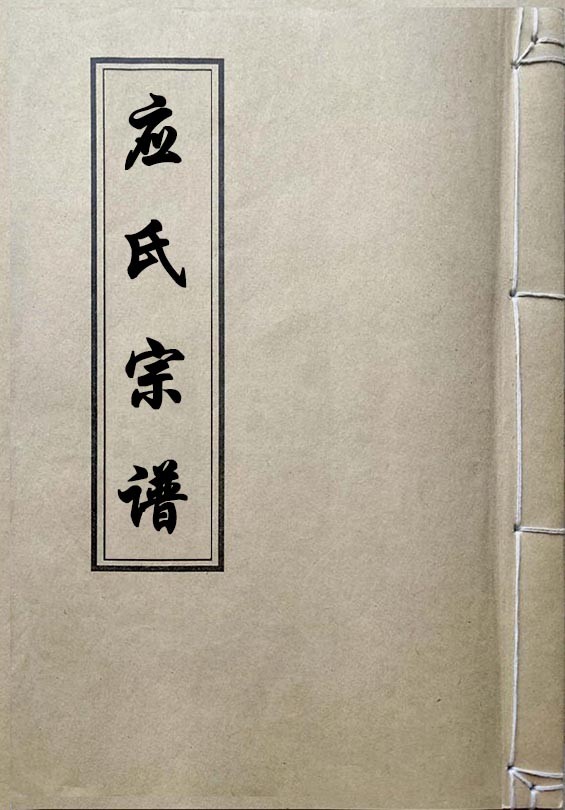 应氏宗谱